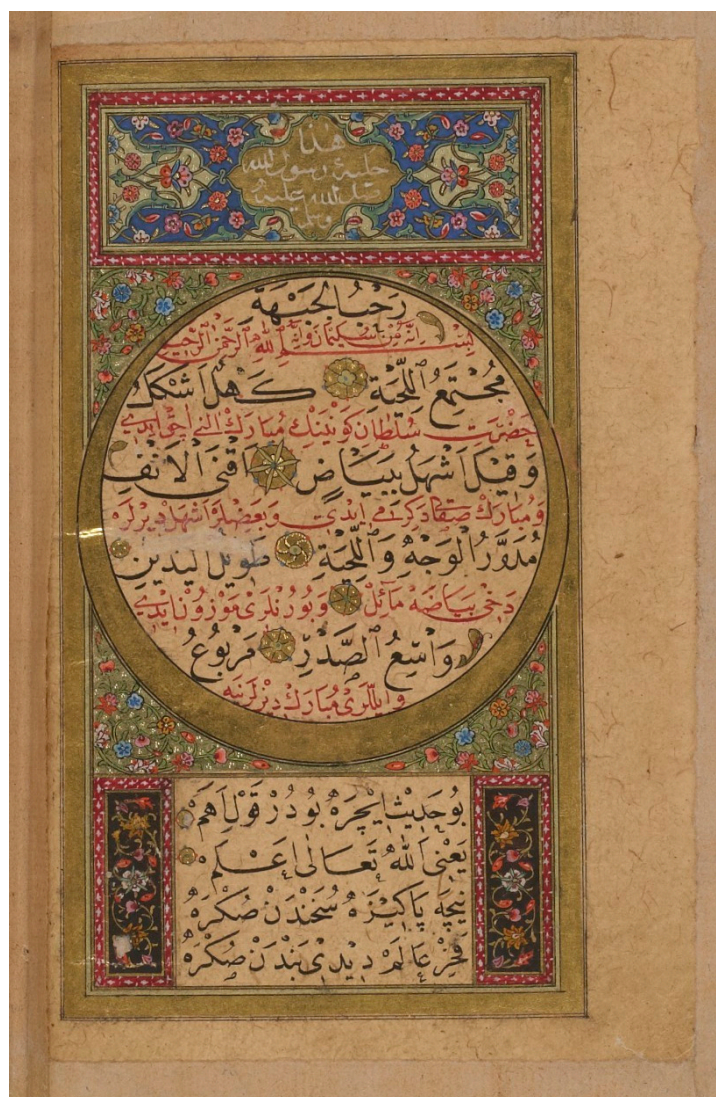 هذا
حلية رسول الله
صلى الله عليه
وسلم
رَحْبُ الْجَبْهَةِ
اِنَّهُ مِنْ سُلَيْمَانَ وَاِنَّهُ بِسْمِ اللهِ الرَّحْمٰنِ الرَّحِيمِ
مُجْتَمِعُ اللِّحْيَةِ كَهْلٌ اَشْكَلُ
حَضْرَتِ سُلْطَانِ كَوْنَيْنِكْ مُبَارَكْ اَلْنِى اَچِقْ ايدى
وَقِيلَ اَشْهَلُ بِبَيَاضٍ اَقْنَى الْاَنْفِ
وَمُبَارَكْ صَقَالْ دَكِرْمِى ايدى وَبَعْضِلَرْ اَشْهَلْ دِيرْلَرْ
مُدَوَّرُ الْوَجْهِ وَاللِّحْيَةِ طَوِيلُ الْيَدَيْنِ
دَخِى بَيَاضَه مَائِلْ وَبُورُنْلَرِى مَوْزُون ايدى
وَاسِعُ الصَّدْرِ مَرْبُوعُ
وَاَللَّرِى مُبَارَكْ دِيزْلَرِنَه
بُو حَدِيثْ اِيچْرَهْ بُودُرْ قَوْلِ اَهَمْ
يَعْنِى اللهُ تَعَالَى اَعْلَمْ
نِيچَهْ پَاكِيزَهْ سُخَنْدَنْ صُكْرَهْ
فَخْرِ عَالَمْ دِيدِى بَنْدَنْ صُكْرَهْ